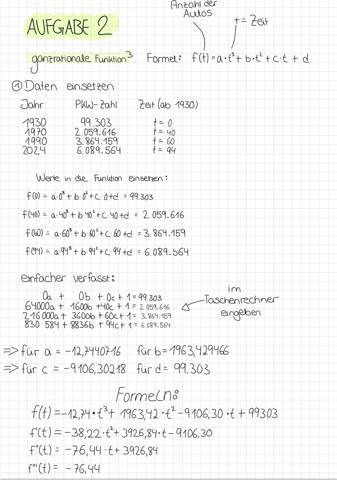 Anzahl der
Autos
t = Zeit
AUFGABE 2
ganzrationale Funktion³ Formel: f(t) = a·t³ + b·t² + c·t + d
① Daten einsetzen
Jahr PKW-Zahl Zeit (ab 1930)
1930 99.303 t = 0
1970 2.059.616 t = 40
1990 3.864.159 t = 60
2024 6.089.564 t = 94
Werte in die Funktion einsetzen:
f(0) = a·0³ + b·0² + c·0 + d = 99.303
f(40) = a·40³ + b·40² + c·40 + d = 2.059.616
f(60) = a·60³ + b·60² + c·60 + d = 3.864.159
f(94) = a·94³ + b·94² + c·94 + d = 6.089.564
einfacher verfasst:
0a + 0b + 0c + 1 = 99.303
64000a + 1600b + 40c + 1 = 2.059.616
216000a + 3600b + 60c + 1 = 3.864.159
830 584 + 8836b + 94c + 1 = 6.089.564
im
Taschenrechner
eingeben
=> für a = -12,7440716 für b = 1963,429466
=> für c = -9106,30218 für d = 99.303
Formeln:
f(t) = -12,74·t³ + 1963,42·t² - 9106,30·t + 99303
f'(t) = -38,22·t² + 3926,84·t - 9106,30
f''(t) = -76,44·t + 3926,84
f'''(t) = -76,44